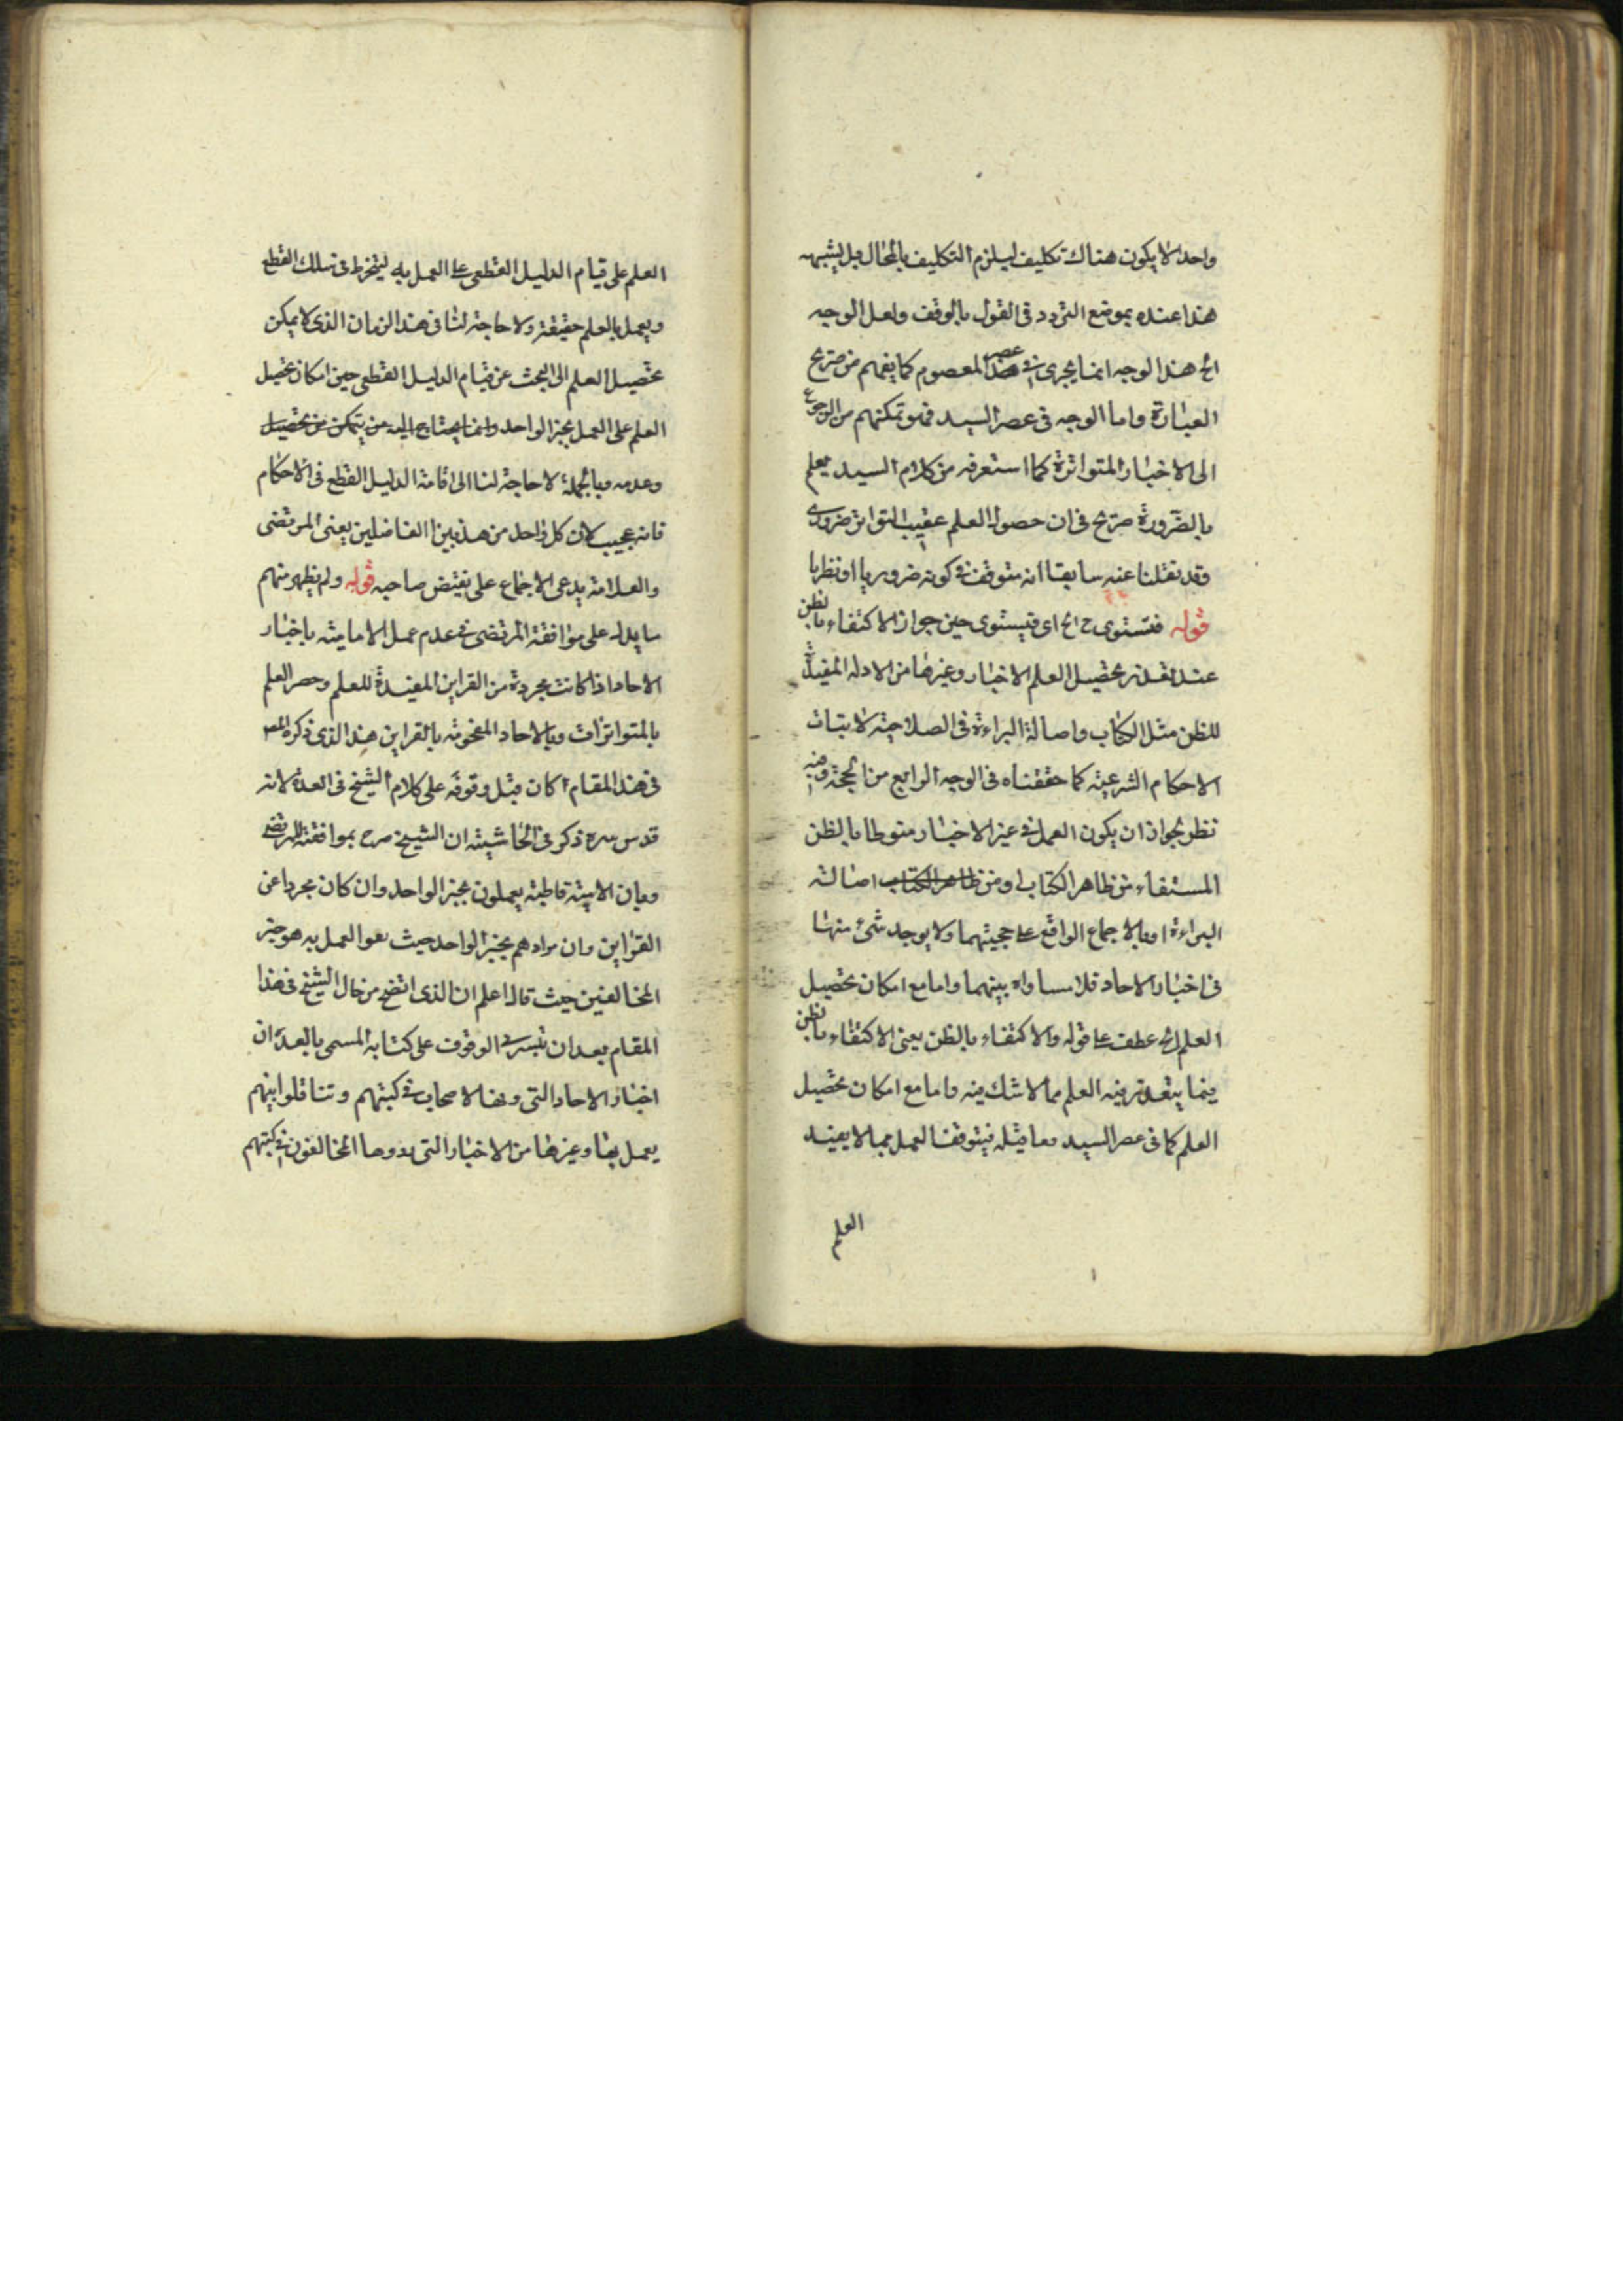 واحد لا يكون هناك تكليف ليلزم التكليف بالمحال بل يشبه
هذا عنده بموضع التردد فى القول بالوقف ولعل الوجه
الخ هذا الوجه انما يجرى فى عصر المعصوم كما يفهم من صريح
العبارة واما الوجه فى عصر السيد فهو تمكنهم من الرجوع
الى الاخبار المتواترة كما استعرفه من كلام السيد يعلم
بالضرورة صريح فى ان حصول العلم عقيب التواتر ضرورى
وقد نقلنا عنه سابقا انه متوقف فى كونه ضروريا او نظريا
قوله فتستوى ح الخ اى فتستوى حين جواز الاكتفاء بالظن
عند تعذر تحصيل العلم الاخبار وغيرها من الادله المفيدة
للظن مثل الكتاب واصالة البراءة فى الصلاحية لاثبات
الاحكام الشرعية كما حققناه فى الوجه الرابع من الحجة وفيه
نظر لجواز ان يكون العمل فى غير الاخبار منوطا بالظن
المستفاد من ظاهر الكتاب او من ظاهر الكتاب اصالة
البراءة او بالاجماع الواقع على حجيتهما ولا يوجد شئ منها
فى اخبار الاحاد فلا مساواة بينهما واما مع امكان تحصيل
العلم الخ عطف على قوله والاكتفاء بالظن يعنى الاكتفاء بالظن
فيما يتعذر فيه العلم مما لا شك فيه واما مع امكان تحصيل
العلم كما فى عصر السيد وما قبله فيتوقف العمل بما لا يفيد
العلم
العلم على قيام الدليل القطعى على العمل به لينخرط فى سلك القطع
ويعمل بالعلم حقيقة ولا حاجة لنا فى هذا الزمان الذى لا يمكن
تحصيل العلم الى البحث عن قيام الدليل القطعى حين امكان تحصيل
العلم على العمل بخبر الواحد وانما يحتاج اليه من يتمكن من تحصيل
وعدمه وبالجملة لا حاجة لنا الى اقامة الدليل القطع فى الاحكام
فانه عجيب لان كل واحد من هذين الفاضلين يعنى المرتضى
والعلامة يدعى الاجماع على نقيض صاحبه قوله ولم يظهر منهم
ما يدل على موافقة المرتضى فى عدم عمل الامامية باخبار
الاحاد اذا كانت مجردة من القراين المفيدة للعلم وحصر العلم
بالمتواترات وبالاحاد المحفوفة بالقراين هذا الذى ذكره المص
فى هذا المقام كان قبل وقوفه على كلام الشيخ فى العدة لانه
قدس سره ذكر فى الحاشية ان الشيخ صرح بموافقته للمرتضى
وبان الامامية قاطبة يعملون بخبر الواحد وان كان مجردا عن
القراين وان مرادهم بخبر الواحد حيث نفوا العمل به هو خبر
المخالفين حيث قال اعلم ان الذى اتضح من حال الشيخ فى هذا
المقام بعد ان تيسر لى الوقوف على كتابه المسمى بالعدة ان
اخبار الاحاد التى دونها الاصحاب فى كتبهم وتناقلوا بينهم
يعمل بها وغيرها من الاخبار التى دونها المخالفون فى كتبهم